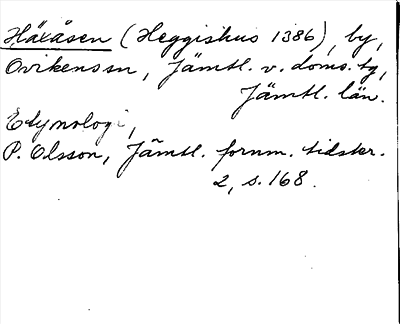 Häxåsen (Heggishus 1386), by,
Ovikens sn, Jämtl. v. doms. tg,
Jämtl. län.
Etymologi,
P. Olsson, Jämtl. fornm. tidskr.
2, s. 168.